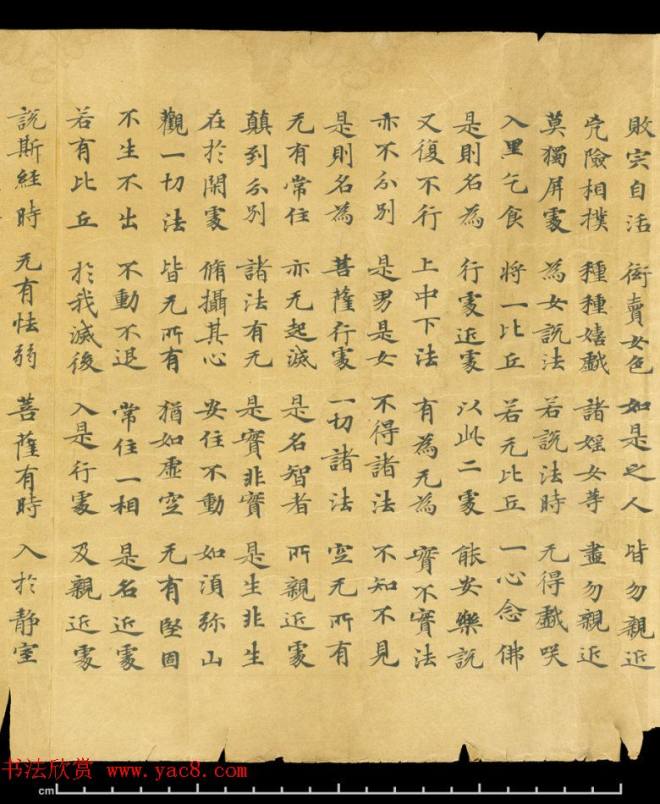 敗宍自活 衒賣女色 如是之人 皆勿親近
兇險相撲 種種嬉戲 諸婬女等 盡勿親近
莫獨屏處 為女說法 若說法時 无得戲咲
入里乞食 將一比丘 若无比丘 一心念佛
是則名為 行處近處 以此二處 能安樂說
又復不行 上中下法 有為无為 實不實法
亦不分別 是男是女 不得諸法 不知不見
是則名為 菩薩行處 一切諸法 空无所有
无有常住 亦无起滅 是名智者 所親近處
顛到分別 諸法有无 是實非實 是生非生
在於閑處 脩攝其心 安住不動 如須弥山
觀一切法 皆无所有 猶如虛空 无有堅固
不生不出 不動不退 常住一相 是名近處
若有比丘 於我滅後 入是行處 及親近處
說斯経時 无有怯弱 菩薩有時 入於靜室
书法欣赏 www.yac8.com
cm